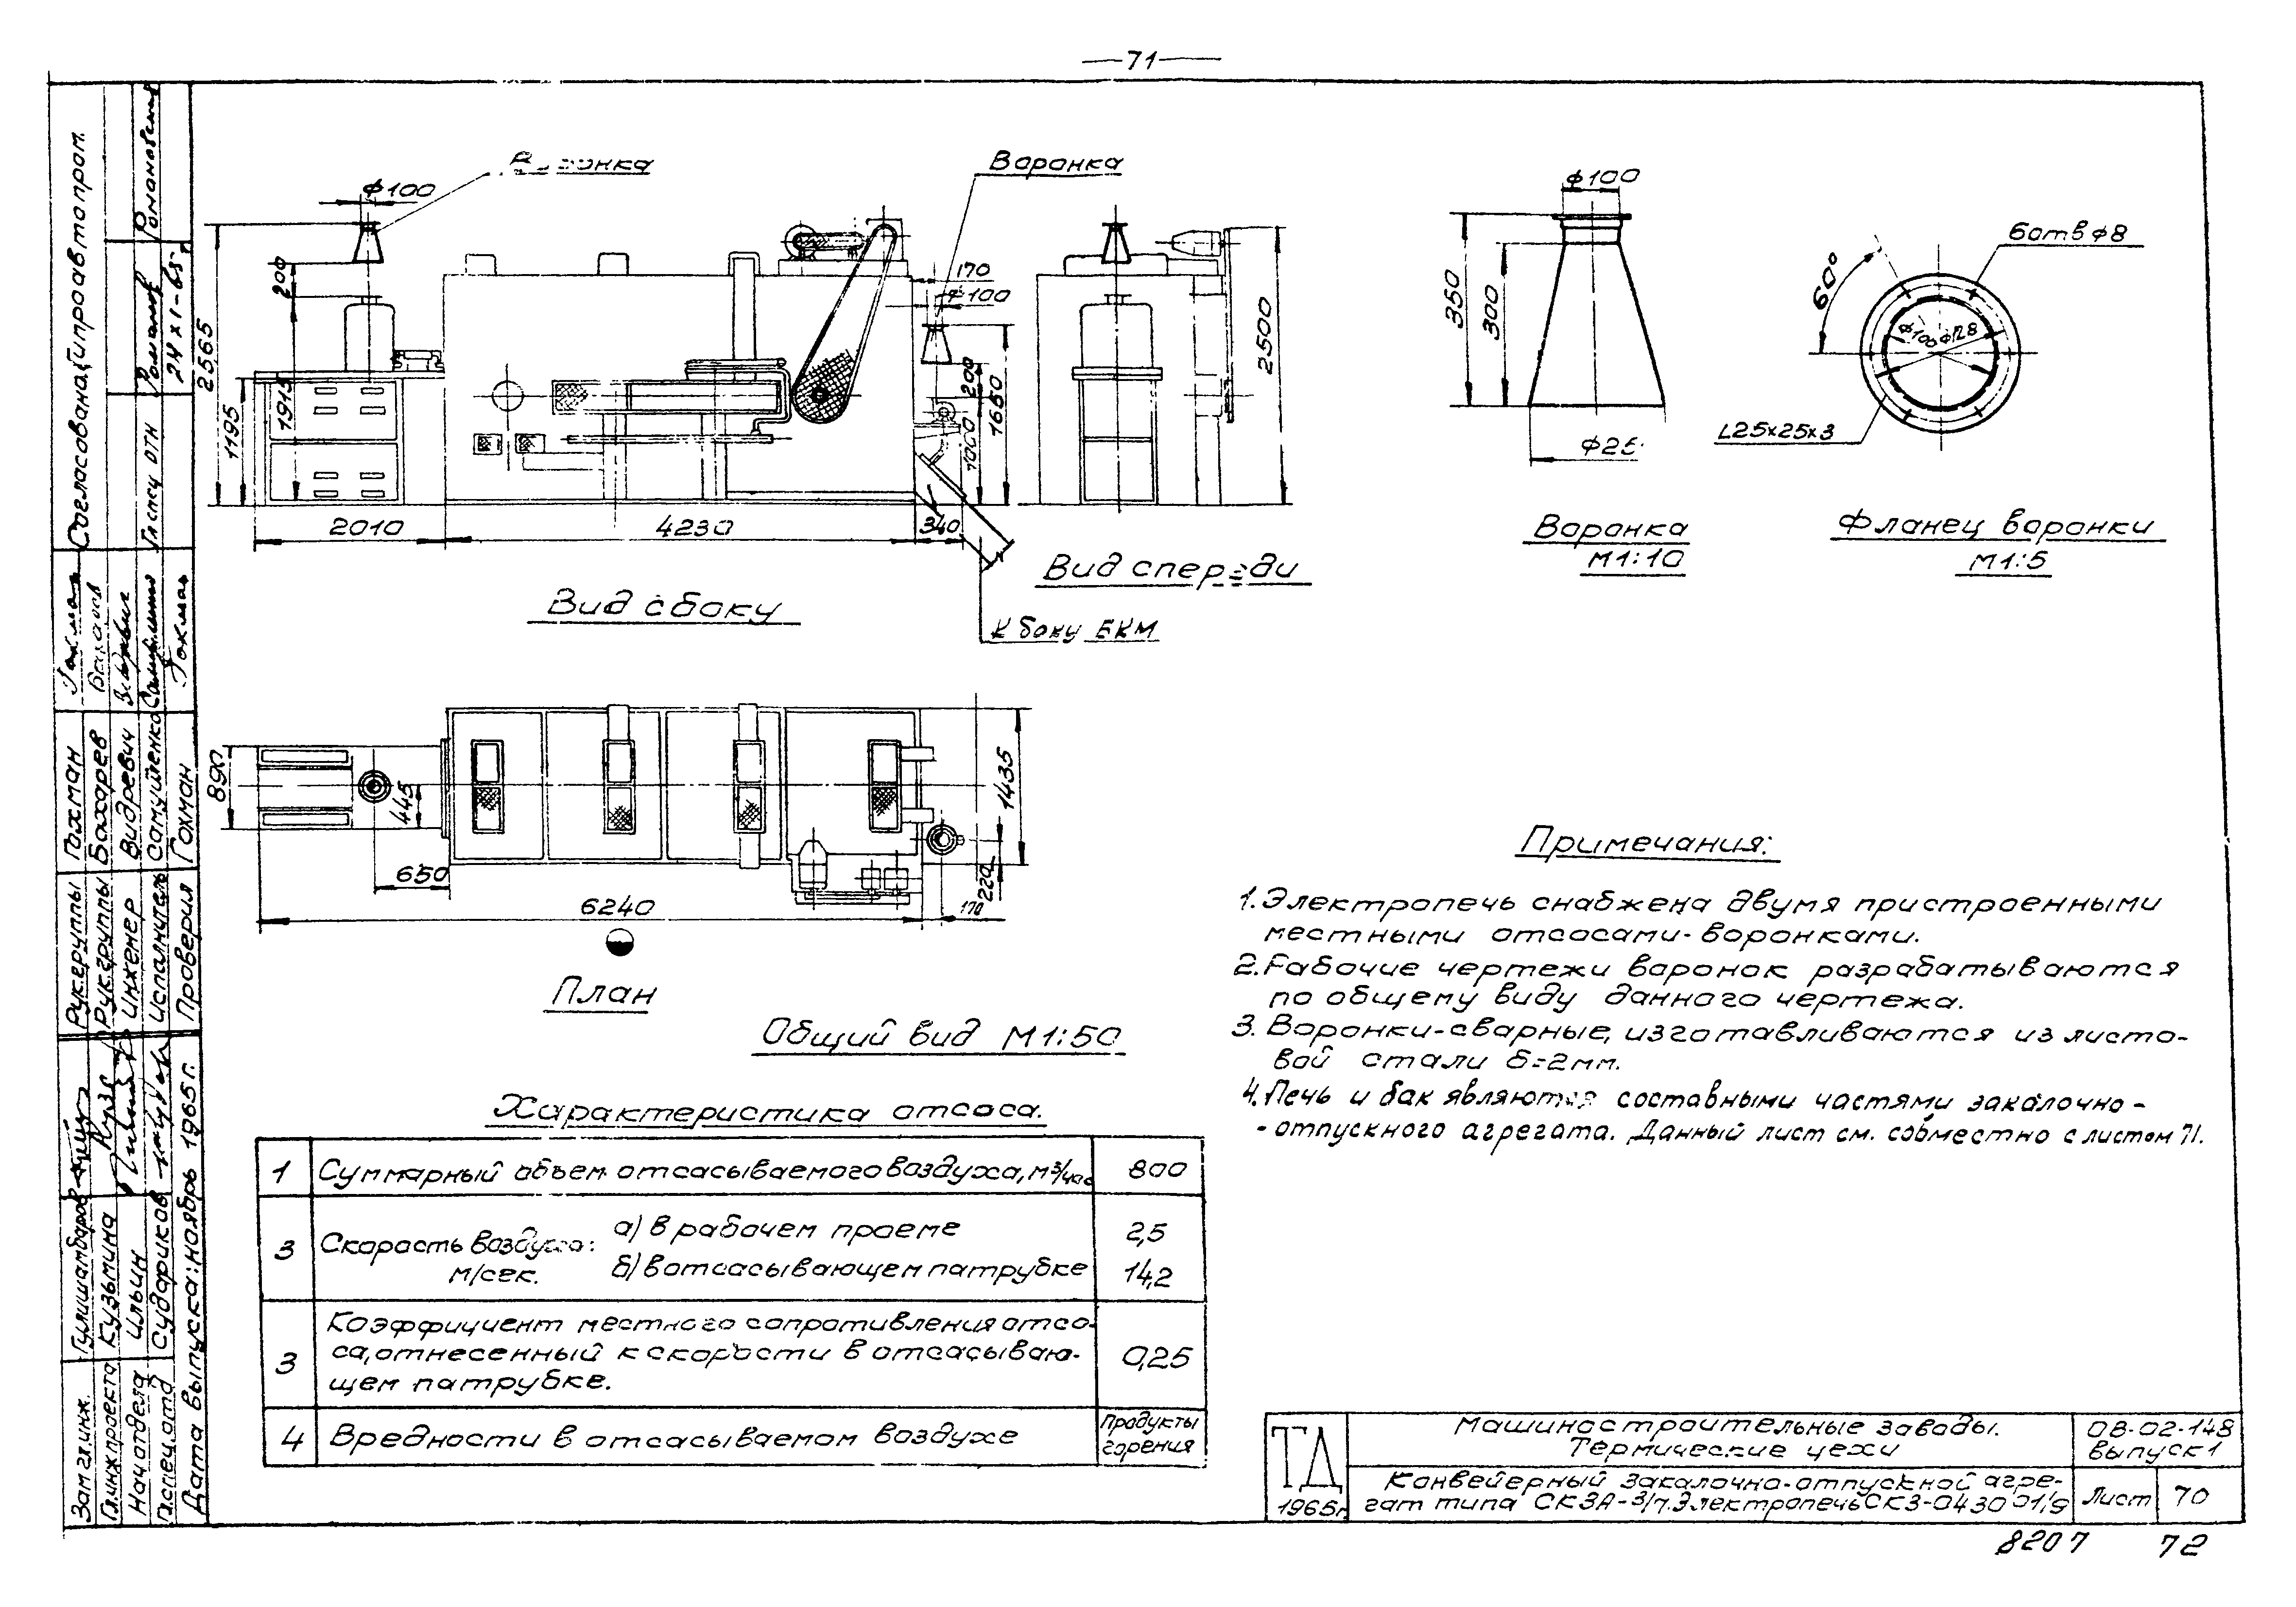 71
Воронка
Воронка
ф100
200
2565
1195
1915
2010
4230
340
170
ф100
200
1000
1650
2500
Вид сбоку
Вид спереди
К баку БКМ
ф100
350
300
Воронка
М1:10
6 отв ф8
60°
ф100
L25×25×3
Фланец воронки
М1:5
890
445
650
6240
170
220
1435
План
Общий вид М1:50
Примечания:
1. Электропечь снабжена двумя пристроенными
местными отсосами-воронками.
2. Рабочие чертежи воронок разрабатываются
по общему виду данного чертежа.
3. Воронки-сварные, изготавливаются из листо-
вой стали δ=2мм.
4. Печь и бак являются составными частями закалочно-
-отпускного агрегата. Данный лист см. совместно с листом 71.
Характеристика отсоса.
1 Суммарный объем отсасываемого воздуха, м³/час 800
3 Скорость воздуха: м/сек. а) в рабочем проеме 2,5
б) в отсасывающем патрубке 14,2
3 Коэффициент местного сопротивления отсо-
са, отнесенный к скорости в отсасываю-
щем патрубке. 0,25
4 Вредности в отсасываемом воздухе Продукты
горения
ТД
1965г.
Машиностроительные заводы.
Термические цехи
ОВ-02-148
Выпуск 1
Конвейерный закалочно-отпускной агре-
гат типа СКЗА-3/7. Электропечь СКЗ-04.30.01/9
Лист 70
8207 72
Согласована: Гипроавтопром.
Гл. спец ОТН
Романовский
Рук. группы Гохман
Рук. группы Бахарев
Инженер Видревич
Исполнитель Самуйленко
Проверил Гохман
Зам гл. инж.
Гл. инж проекта Кузьмина
Нач отдела Ильин
Гл. спец. отд Судариков
Дата выпуска: ноябрь 1965г.